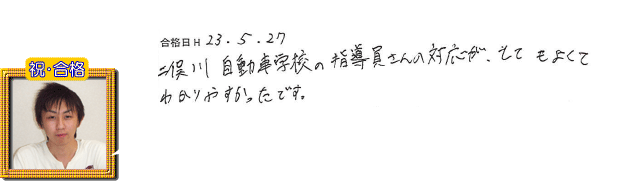 合格日H 23.5.27
二俣川自動車学校の指導員さんの対応が、とてもよくて
わかりやすかったです。
祝・合格